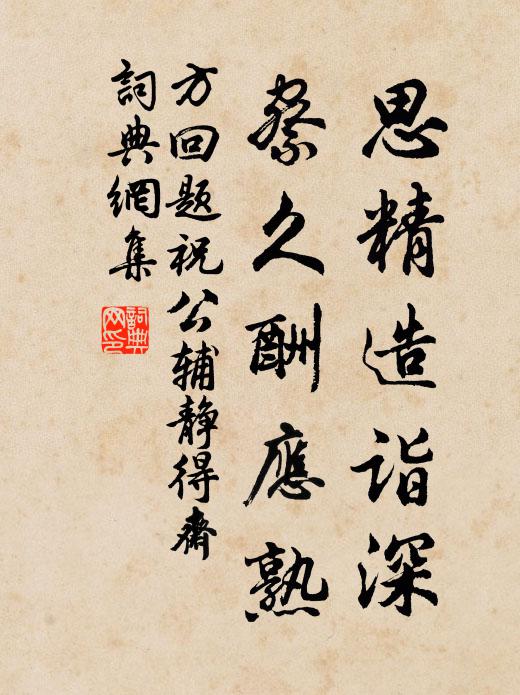 思精造诣深
察久酬應熟
方回题祝公辅静得齋
詞典網集
詞典网印